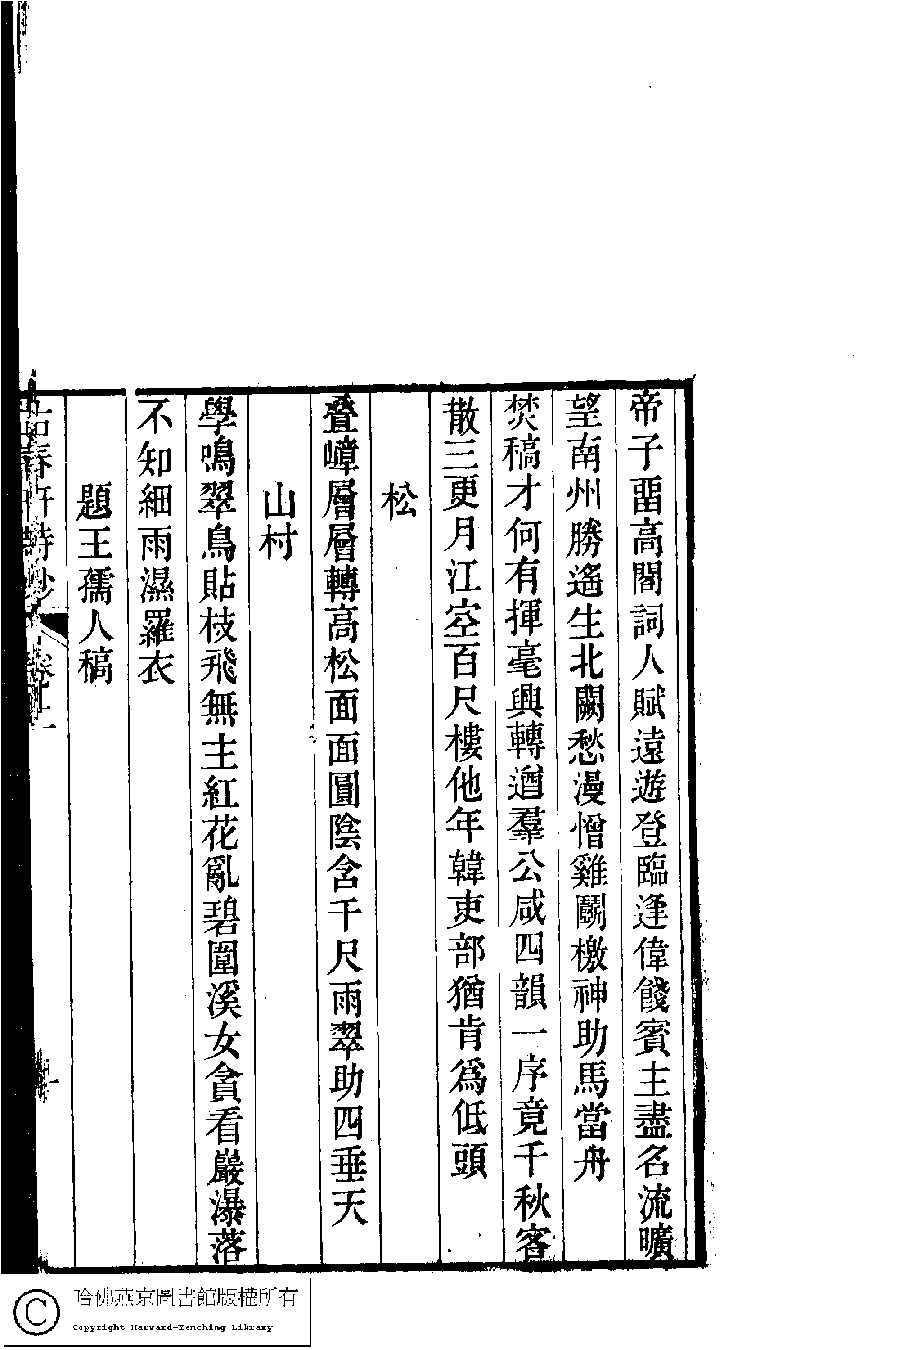 帝子畱高閣詞人賦遠遊登臨逢偉餞賓主盡名流曠
望南州勝遙生北闕愁漫憎雞鬭檄神助馬當舟
焚稿才何有揮毫興轉遒羣公咸四韻一序竟千秋客
散三更月江空百尺樓他年韓吏部猶肯爲低頭
松
叠嶂層層轉高松面面圓陰含千尺雨翠助四垂天
山村
學鳴翠鳥貼枝飛無主紅花亂碧圍溪女貪看巖瀑落
不知細雨濕羅衣
題王孺人稿
春 詩 卷
哈佛燕京圖書館版權所有
Copyright Harvard-Yenching Library